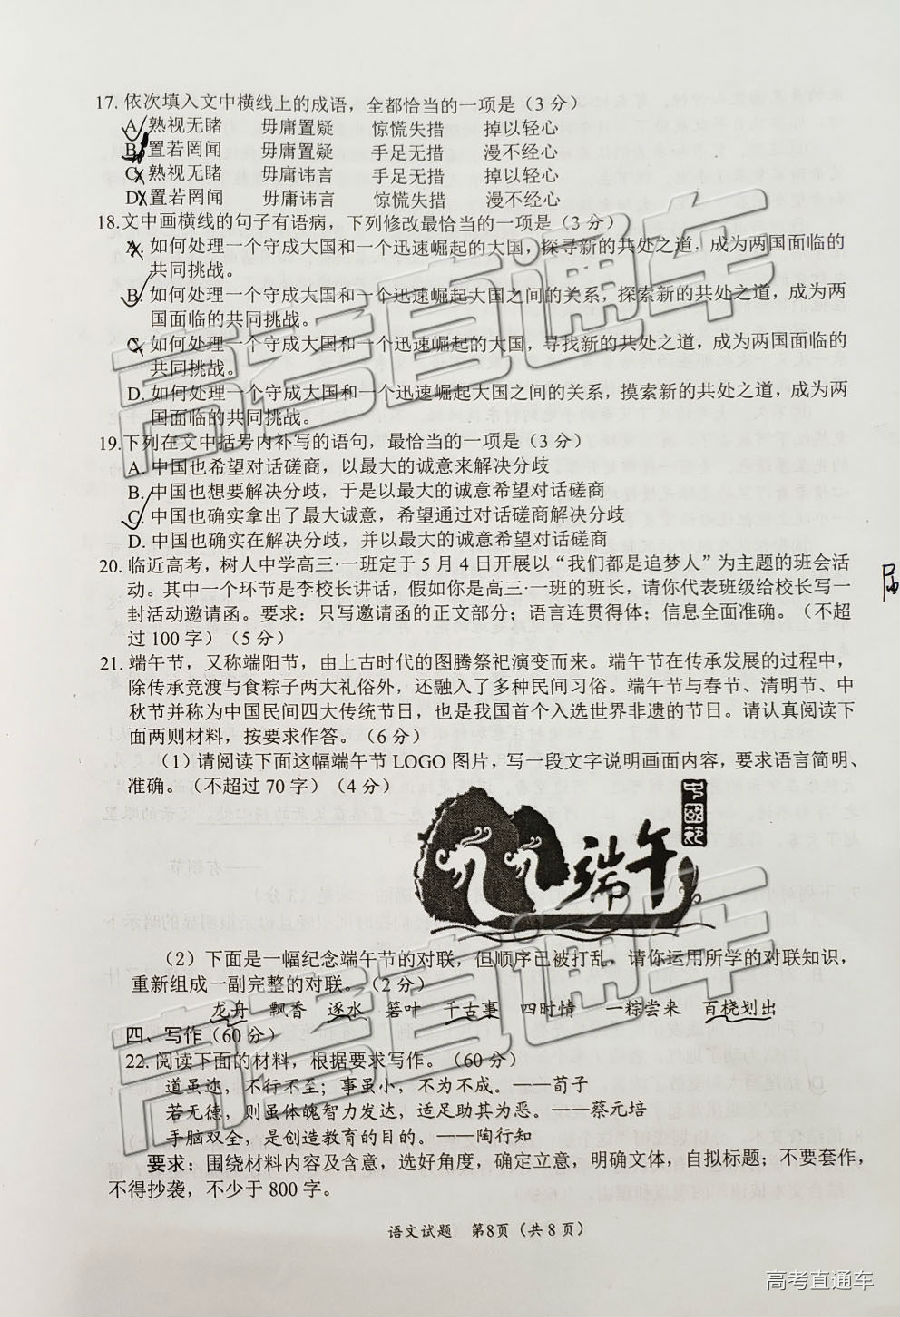 17. 依次填入文中横线上的成语，全都恰当的一项是（3 分）
A. 熟视无睹 毋庸置疑 惊慌失措 掉以轻心
B. 置若罔闻 毋庸置疑 手足无措 漫不经心
C. 熟视无睹 毋庸讳言 手足无措 掉以轻心
D. 置若罔闻 毋庸讳言 惊慌失措 漫不经心
18. 文中画横线的句子有语病，下列修改最恰当的一项是（3 分）
A. 如何处理一个守成大国和一个迅速崛起的大国，探寻新的共处之道，成为两国面临的
共同挑战。
B. 如何处理一个守成大国和一个迅速崛起大国之间的关系，探索新的共处之道，成为两
国面临的共同挑战。
C. 如何处理一个守成大国和一个迅速崛起的大国，寻找新的共处之道，成为两国面临的
共同挑战。
D. 如何处理一个守成大国和一个迅速崛起的大国之间的关系，摸索新的共处之道，成为两
国面临的共同挑战。
19. 下列在文中括号内补写的语句，最恰当的一项是（3 分）
A. 中国也希望对话磋商，以最大的诚意来解决分歧
B. 中国也想要解决分歧，于是以最大的诚意希望对话磋商
C. 中国也确实拿出了最大诚意，希望通过对话磋商解决分歧
D. 中国也确实在解决分歧，并以最大的诚意希望对话磋商
20. 临近高考，树人中学高三·一班定于 5 月 4 日开展以“我们都是追梦人”为主题的班会活
动。其中一个环节是李校长讲话，假如你是高三·一班的班长，请你代表班级给校长写一
封活动邀请函。要求：只写邀请函的正文部分；语言连贯得体；信息全面准确。（不超
过 100 字）（5 分）
21. 端午节，又称端阳节，由上古时代的图腾祭祀演变而来。端午节在传承发展的过程中，
除传承竞渡与食粽子两大礼俗外，还融入了多种民间习俗。端午节与春节、清明节、中
秋节并称为中国民间四大传统节日，也是我国首个入选世界非遗的节日。请认真阅读下
面两则材料，按要求作答。（6 分）
（1）请阅读下面这幅端午节 LOGO 图片，写一段文字说明画面内容，要求语言简明、
准确。（不超过 70 字）（4 分）
中国节
端午
（2）下面是一幅纪念端午节的对联，但顺序已被打乱，请你运用所学的对联知识，
重新组成一副完整的对联。（2 分）
龙舟 飘香 逐水 箬叶 千古事 四时情 一粽尝来 百桡划出
四、写作（60 分）
22. 阅读下面的材料，根据要求写作。（60 分）
道虽迩，不行不至；事虽小，不为不成。——荀子
若无德，则虽体魄智力发达，适足助其为恶。——蔡元培
手脑双全，是创造教育的目的。——陶行知
要求：围绕材料内容及含意，选好角度，确定立意，明确文体，自拟标题；不要套作，
不得抄袭，不少于 800 字。
语文试题 第8页（共 8 页）
高考直通车
高考直通车
高考直通车